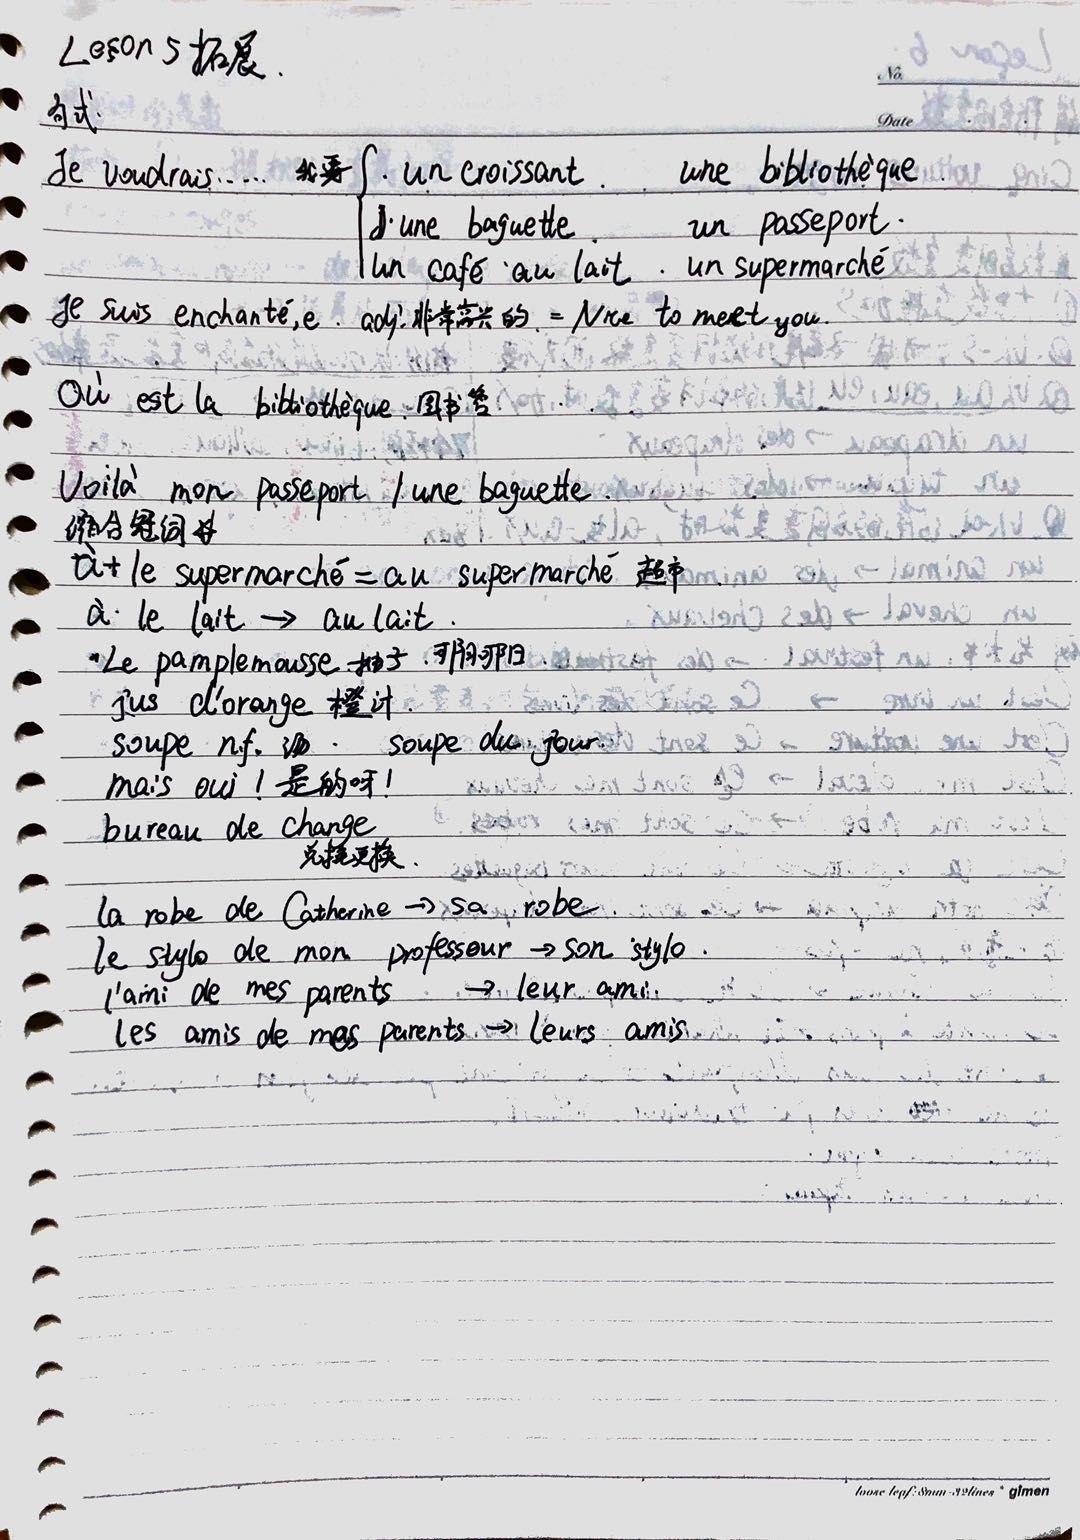 Leçon 5 拓展.
No.
句式:
Date
Je voudrais..... 我要 un croissant. une bibliothèque.
une baguette. un passeport.
un café au lait. un supermarché
Je suis enchanté,e. adj. 非常高兴的. = Nice to meet you.
Où est la bibliothèque. 图书馆.
Voilà mon passeport / une baguette.
缩合冠词
à + le supermarché = au supermarché 超市
à le lait → au lait.
Le pamplemousse 柚子.
jus d'orange 橙汁.
soupe n.f. 汤. soupe du jour.
mais oui! 是的呀!
bureau de change
兑换更换.
la robe de Catherine → sa robe.
le stylo de mon professeur → son stylo.
l'ami de mes parents → leur ami.
les amis de mes parents → leurs amis.
loose leaf: 8mm-32lines * glmen